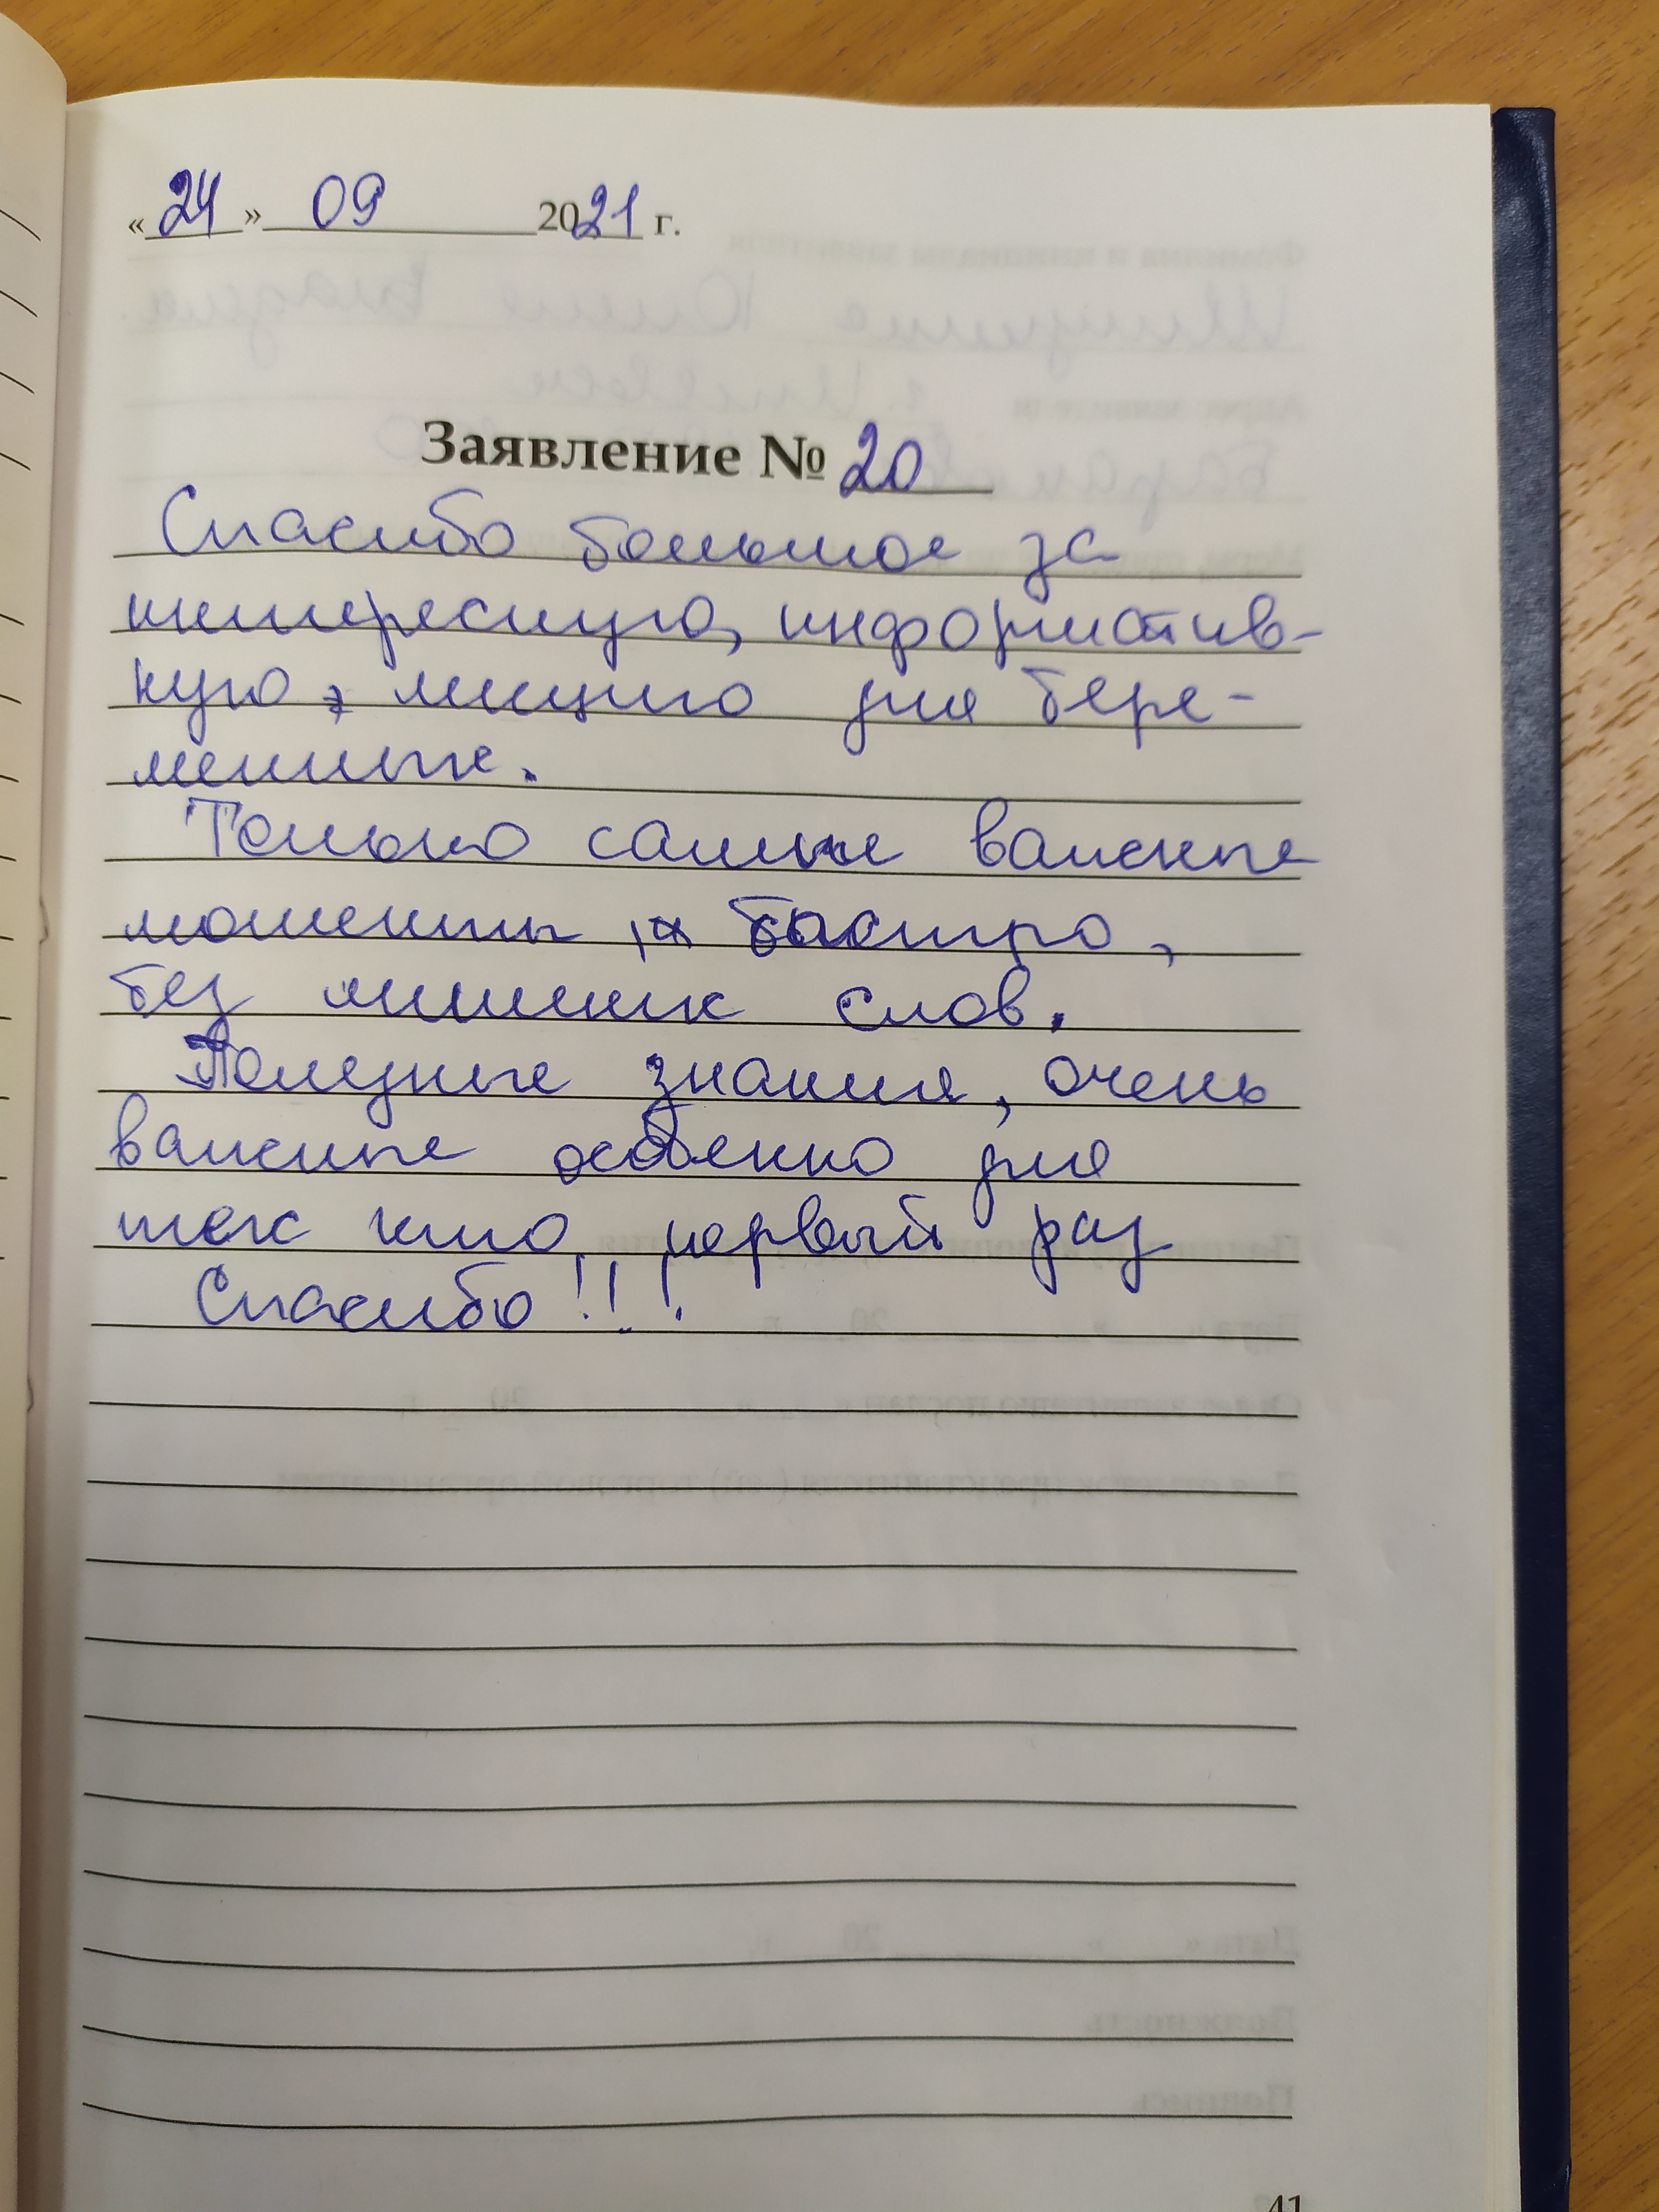 « 24 » 09 2021 г.
Заявление № 20
Спасибо большое за
интересную, информатив-
ную, лекцию для бере-
менных.
Только самые важные
моменты, быстро,
без лишних слов.
Полезные знания, очень
важные особенно для
тех кто первый раз
Спасибо!!!
41